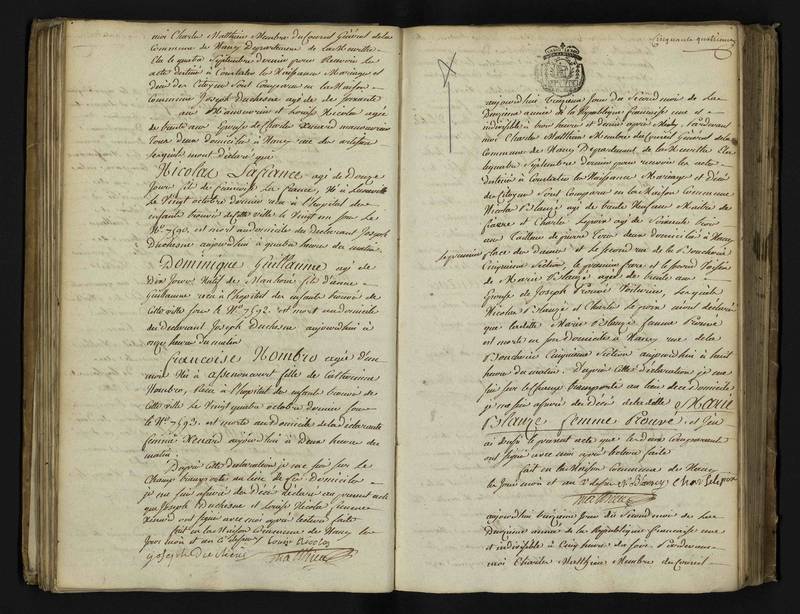 moi Charle Matthieu Membre du Conseil Général de la
Commune de Nancy Département de la Meurthe
Elu le quatre Septembre dernier pour Recevoir les
actes destinés à Constater les Naissances Mariages et
décès des Citoyens Sont Comparu en la Maison
Commune Joseph Duchesne agé de Soixante
ans Manoeuvre et Louise Nicolas agée
de trente ans Epouse de Charle manoeuvre
tous deux domiciliés à Nancy rue des
lesquels mont déclaré que
Nicolas Lafrance agé de Douze
jours fils de françoise La france, Né à Luneville
le Vingt octobre dernier reçu à l'hopital des
enfants trouvés de Cette ville le Vingt un sous le
No 7590. est mort au domicile du déclarant Joseph
Duchesne aujourd'hui à quatre heures du matin.
Dominique Guillaume agé de
Dix Jours Natif de fils d'anne
Guillaume reçu à l'hopital des enfants trouvés de
Cette ville sous le No 7592. est mort au domicile
du déclarant Joseph Duchesne aujourd'hui à
onze heures du matin
françoise Nombro agée d'un
mois Née à fille de Catherinne
Nombro, Reçue à l'hopital des enfants trouvés de
Cette ville Le Vingt quatre octobre dernier sous
le No 7593. est morte au domicile de la déclarante
femme aujourd'hui à Deux heures du
matin.
D'après cette déclaration je me suis sur le
Champ transporté au lieu de ces domiciles
je me suis assuré des Décès déclarés au présent acte
que Joseph Duchesne et Louise Nicolas femme
ont signé avec moi après lecture faite
fait en la Maison Commune de Nancy les
Jour mois et an Ci dessus Louise Nicolas
joseph du chesne Matthieu
Cinquante quatrieme
aujourd'hui Treizieme Jour du Second mois de La
Deuxieme année de la République francaise une et
indivisible à trois heures et demies après Midy, Pardevant
moi Charles Matthieu Membre du Conseil Général de la
Commune de Nancy Département de la Meurthe Elu
le quatre Septembre dernier pour recevoir les actes
destinés à Constater les Naissances Mariages et Décès
des Citoyens Sont Comparu en la Maison Commune
Nicolas Blauzé agé de trente Neuf ans Maître de
et Charle agé de Soixante trois
ans Tailleur de pierre Tous deux domiciliés à Nancy
le premier place des dames et le second rue de la Boucherie
Cinquieme Section, le premier frere et le second Voisin
de Marie Blauzé agée de trente ans
Epouse de Joseph Prouvé Voiturier, lesquels
Nicolas Blauzé et Charle mont déclaré
que ladite Marie Blauzé femme Prouvé
est morte en son domicile à Nancy rue de la
Boucherie Cinquieme Section aujourd'hui à huit
heures du matin. D'après cette déclaration je me
suis sur le Champ transporté au lieu de ce domicile
je me suis assuré du Décès de ladite Marie
Blauzé femme Prouvé et j'en
ai dressé le présent acte que les deux Comparants
ont signé avec moi après lecture faite
fait en la Maison Commune de Nancy
les Jour mois et an Ci dessus
Matthieu
aujourd'hui treizieme Jour du Second mois de La
Deuxieme année de la République francaise une
et indivisible à Cinq heures du soir. Pardevant
moi Charles Matthieu Membre du Conseil